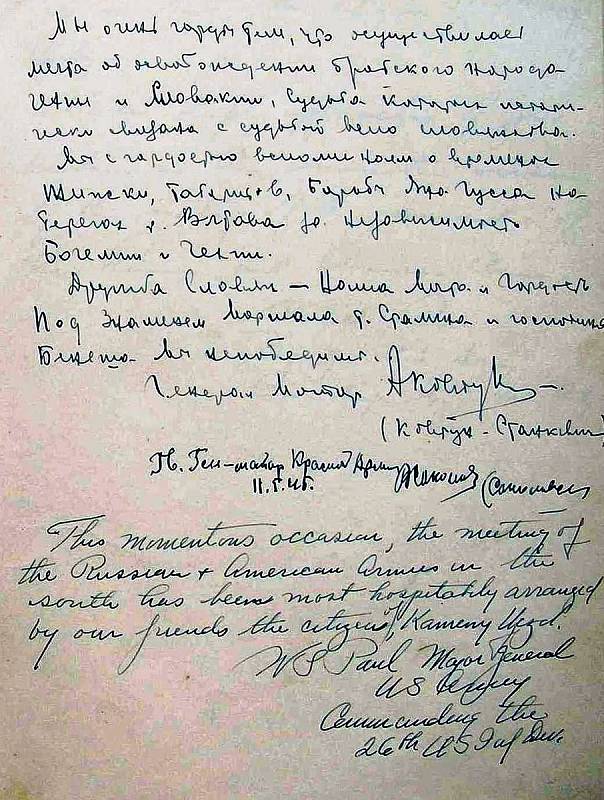 Мы очень горды тем, что осуществилась
мечта об освобождении братского народа
Чехии и Словакии, судьба которых истори-
чески связана с судьбой всего славянства.
Мы с гордостью вспоминаем о временах
Жижки, Таборитов, борьбы Яна Гусса на
берегах р. Влтава за независимость
Богемии и Чехии.
Дружба Славян — наша и гордость
Под знаменем Маршала т. Сталина и господина
Бенеша мы непобедимы.
Генерал Майор АКовтун
(Ковтун-Станкевич)
Гв. Ген-майор Красной Армии
11.5.45.
This momentous occasion, the meeting of
the Russian & American Armies in the
south has been most hospitably arranged
by our friends the citizens of Kameny Ujezd.
W S Paul Major General
US Army
Commanding the
26th US Inf Div.